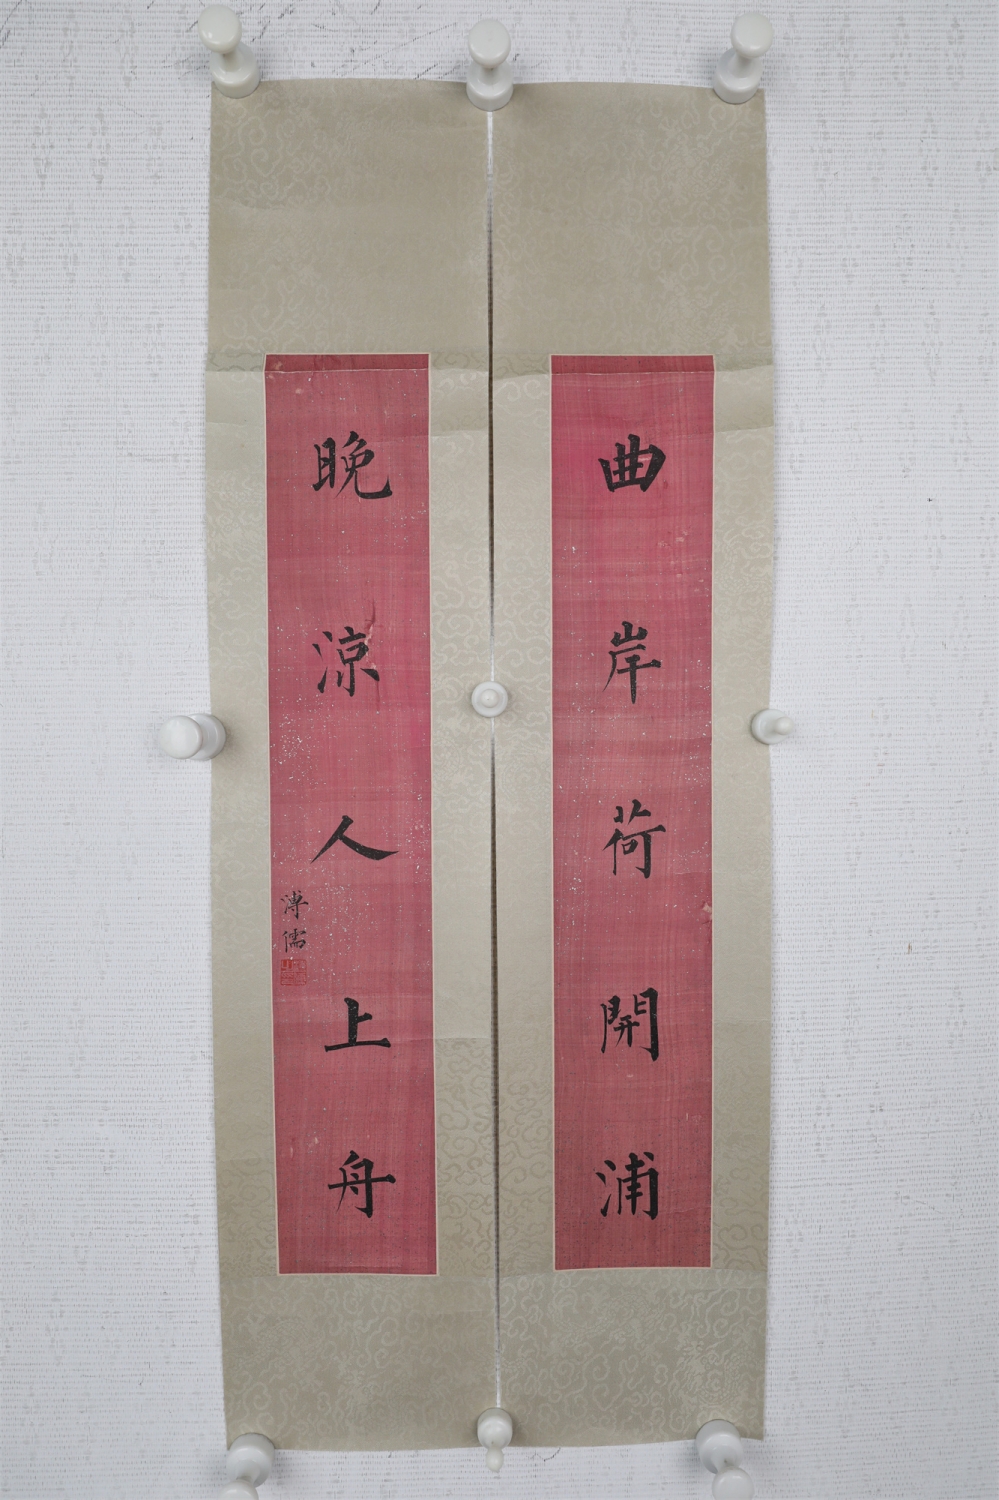 曲岸荷開浦
晚涼人上舟
溥儒